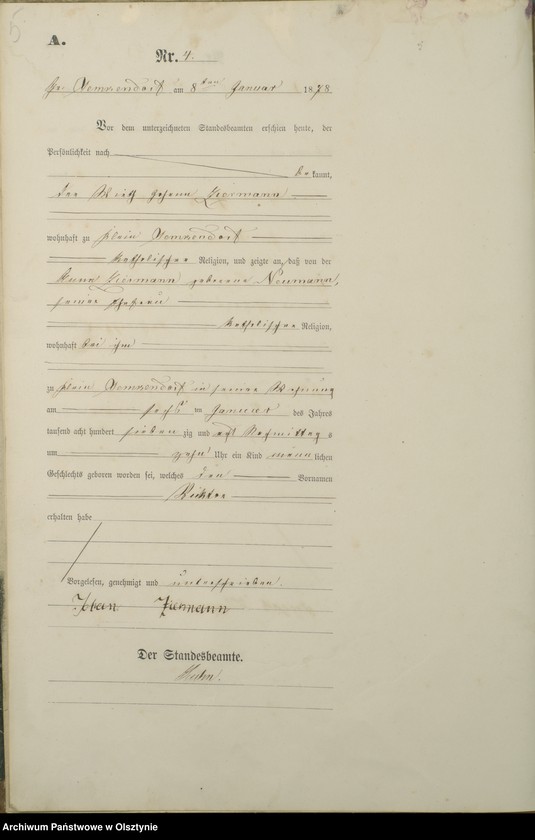 5
A.
Nr. 4.
am 8ten Januar 1878
Vor dem unterzeichneten Standesbeamten erschien heute, der
Persönlichkeit nach
bekannt,
der Wirth Johann Ziermann
wohnhaft zu Klein
katholischer Religion, und zeigte an, daß von der
Anna Ziermann geborene Neumann,
seiner Ehefrau
katholischer Religion,
wohnhaft bei ihm
zu Klein in seiner Wohnung
am sechs ten Januar des Jahres
tausend acht hundert sieben zig und acht Nachmittag s
um zehn Uhr ein Kind männ lichen
Geschlechts geboren worden sei, welches den Vornamen
erhalten habe
Vorgelesen, genehmigt und unterschrieben.
Ziermann
Der Standesbeamte.
Archiwum Państwowe w Olsztynie